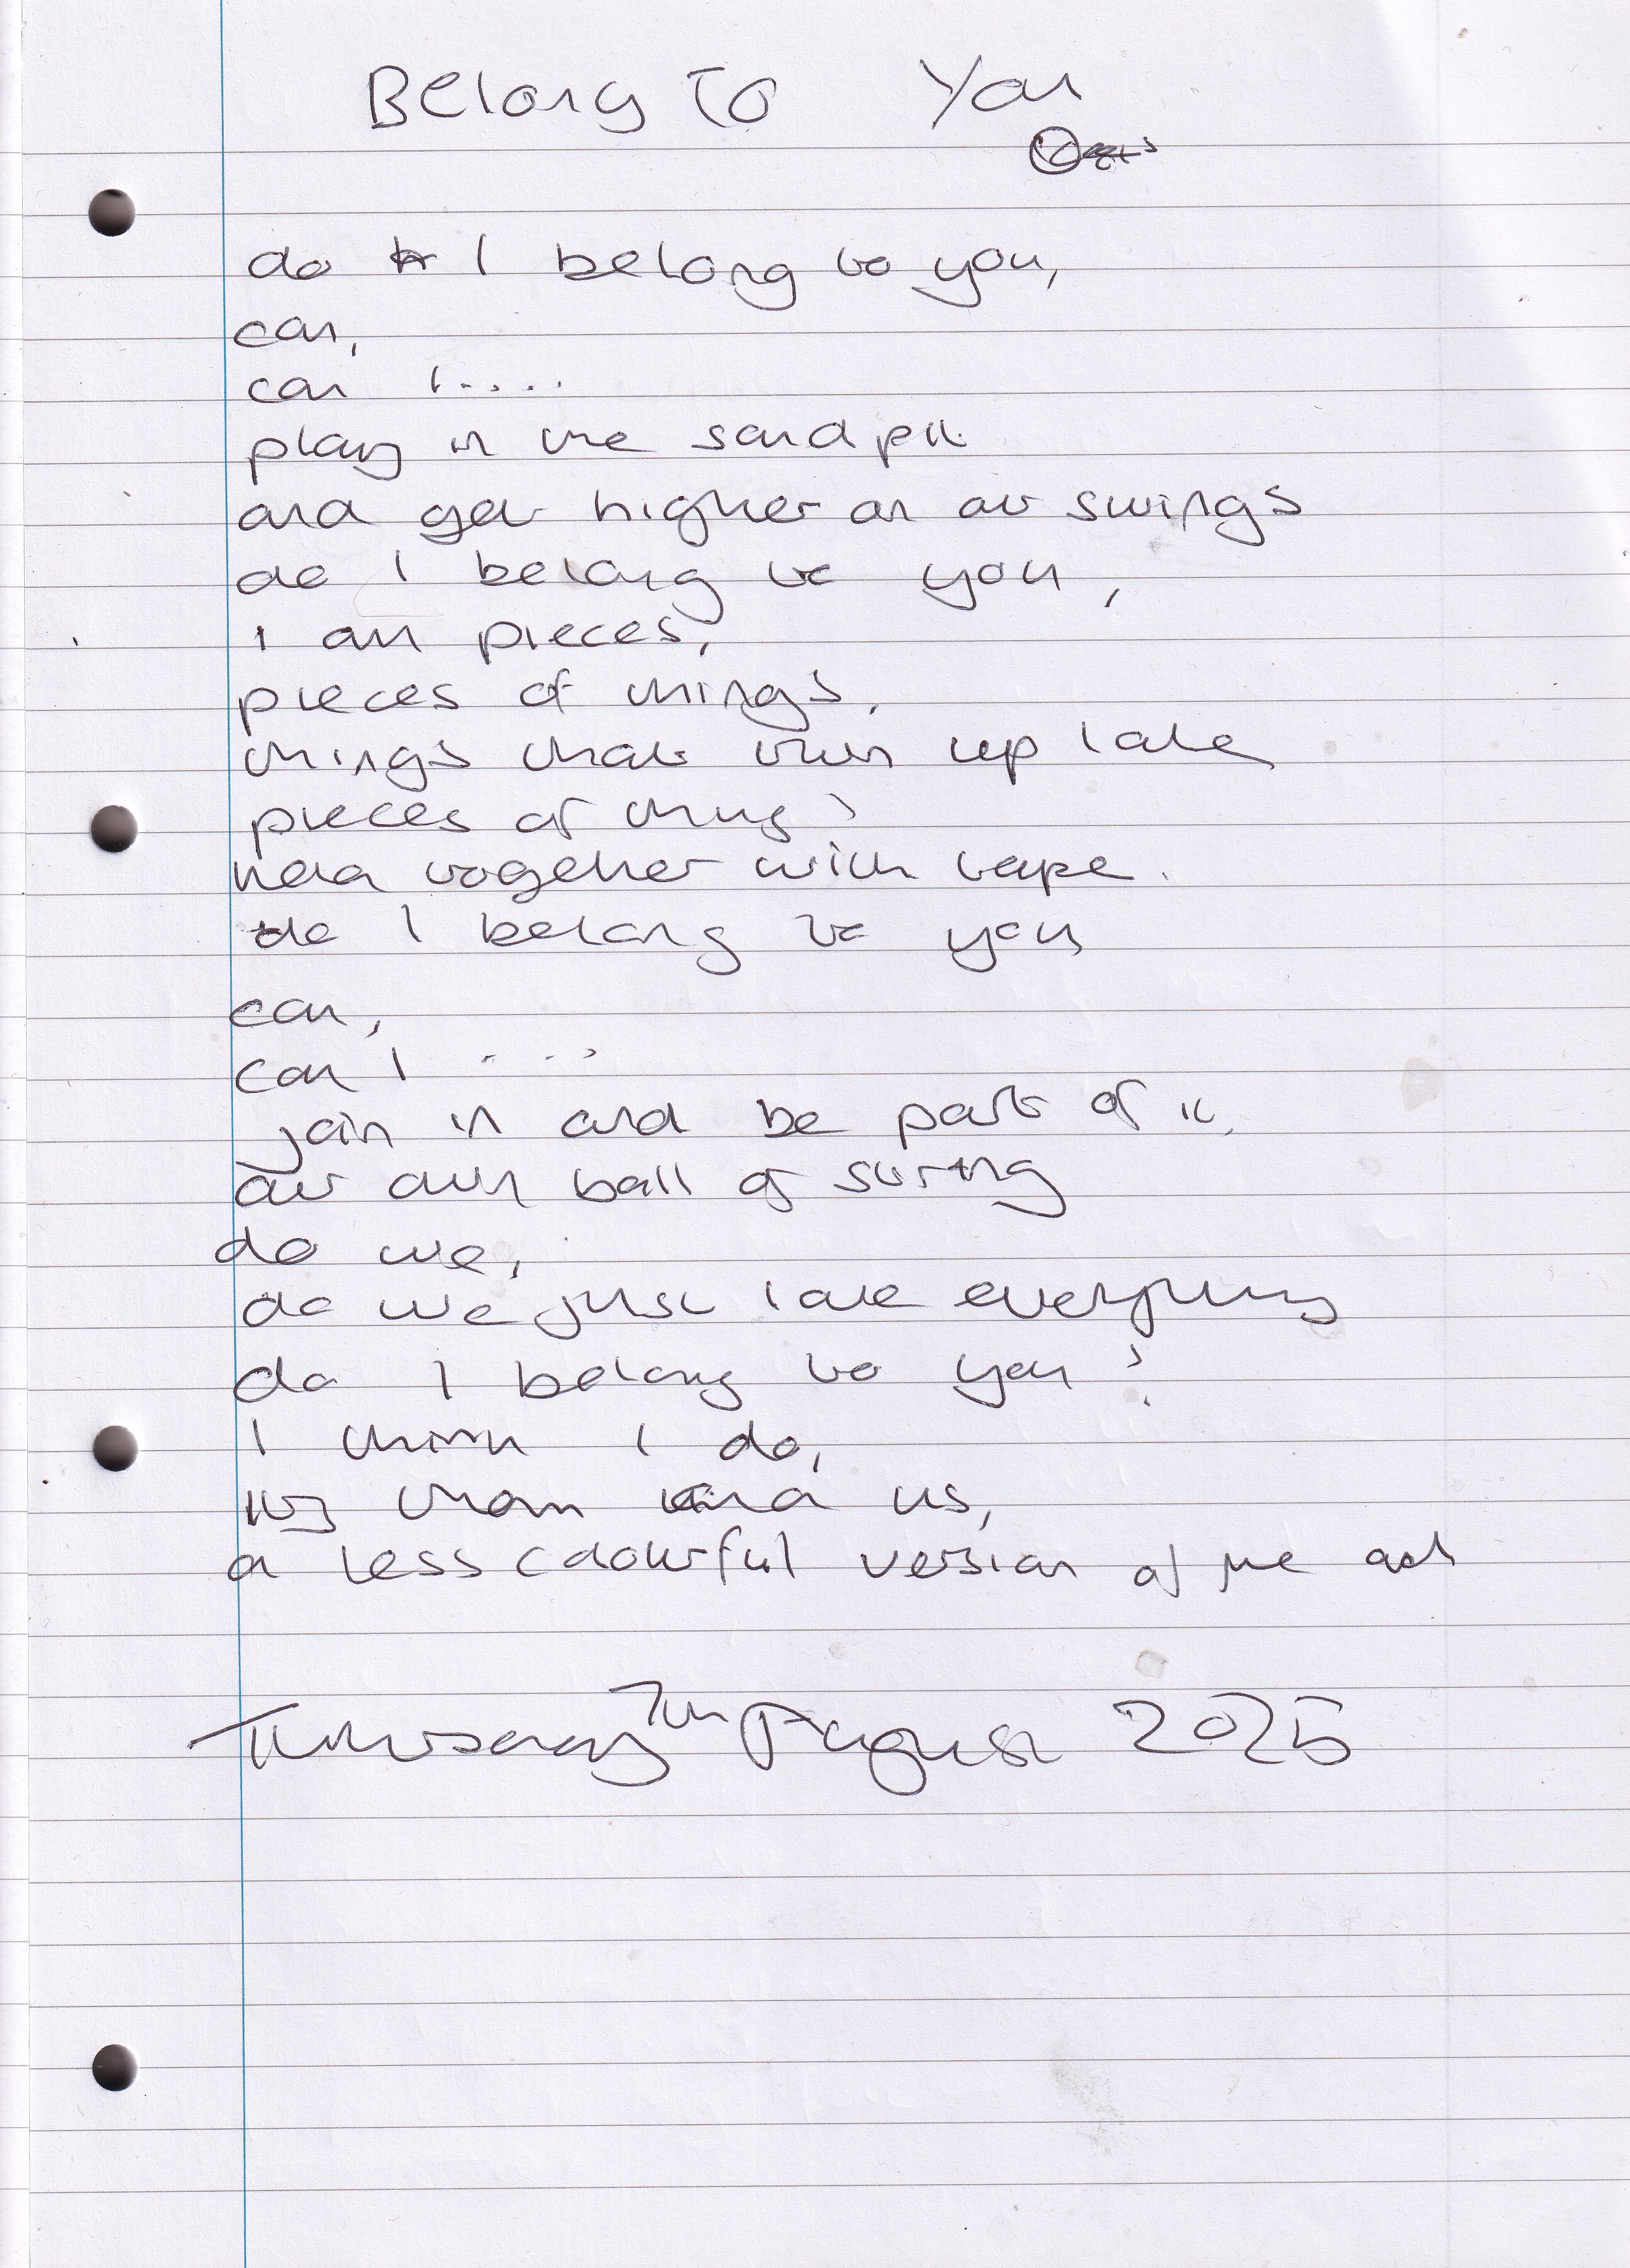 Belong To You
do I belong to you,
can,
can I.....
play in the sandpit
and get higher on our swings
do I belong to you,
I am pieces,
pieces of things,
things that turn up late
pieces of things
held together with tape.
do I belong to you
can,
can I ....
join in and be part of it,
our own ball of string
do we,
do we just love everything
do I belong to you?
I think I do,
them and us,
a less colourful version of me and
Thursday 7th August 2025